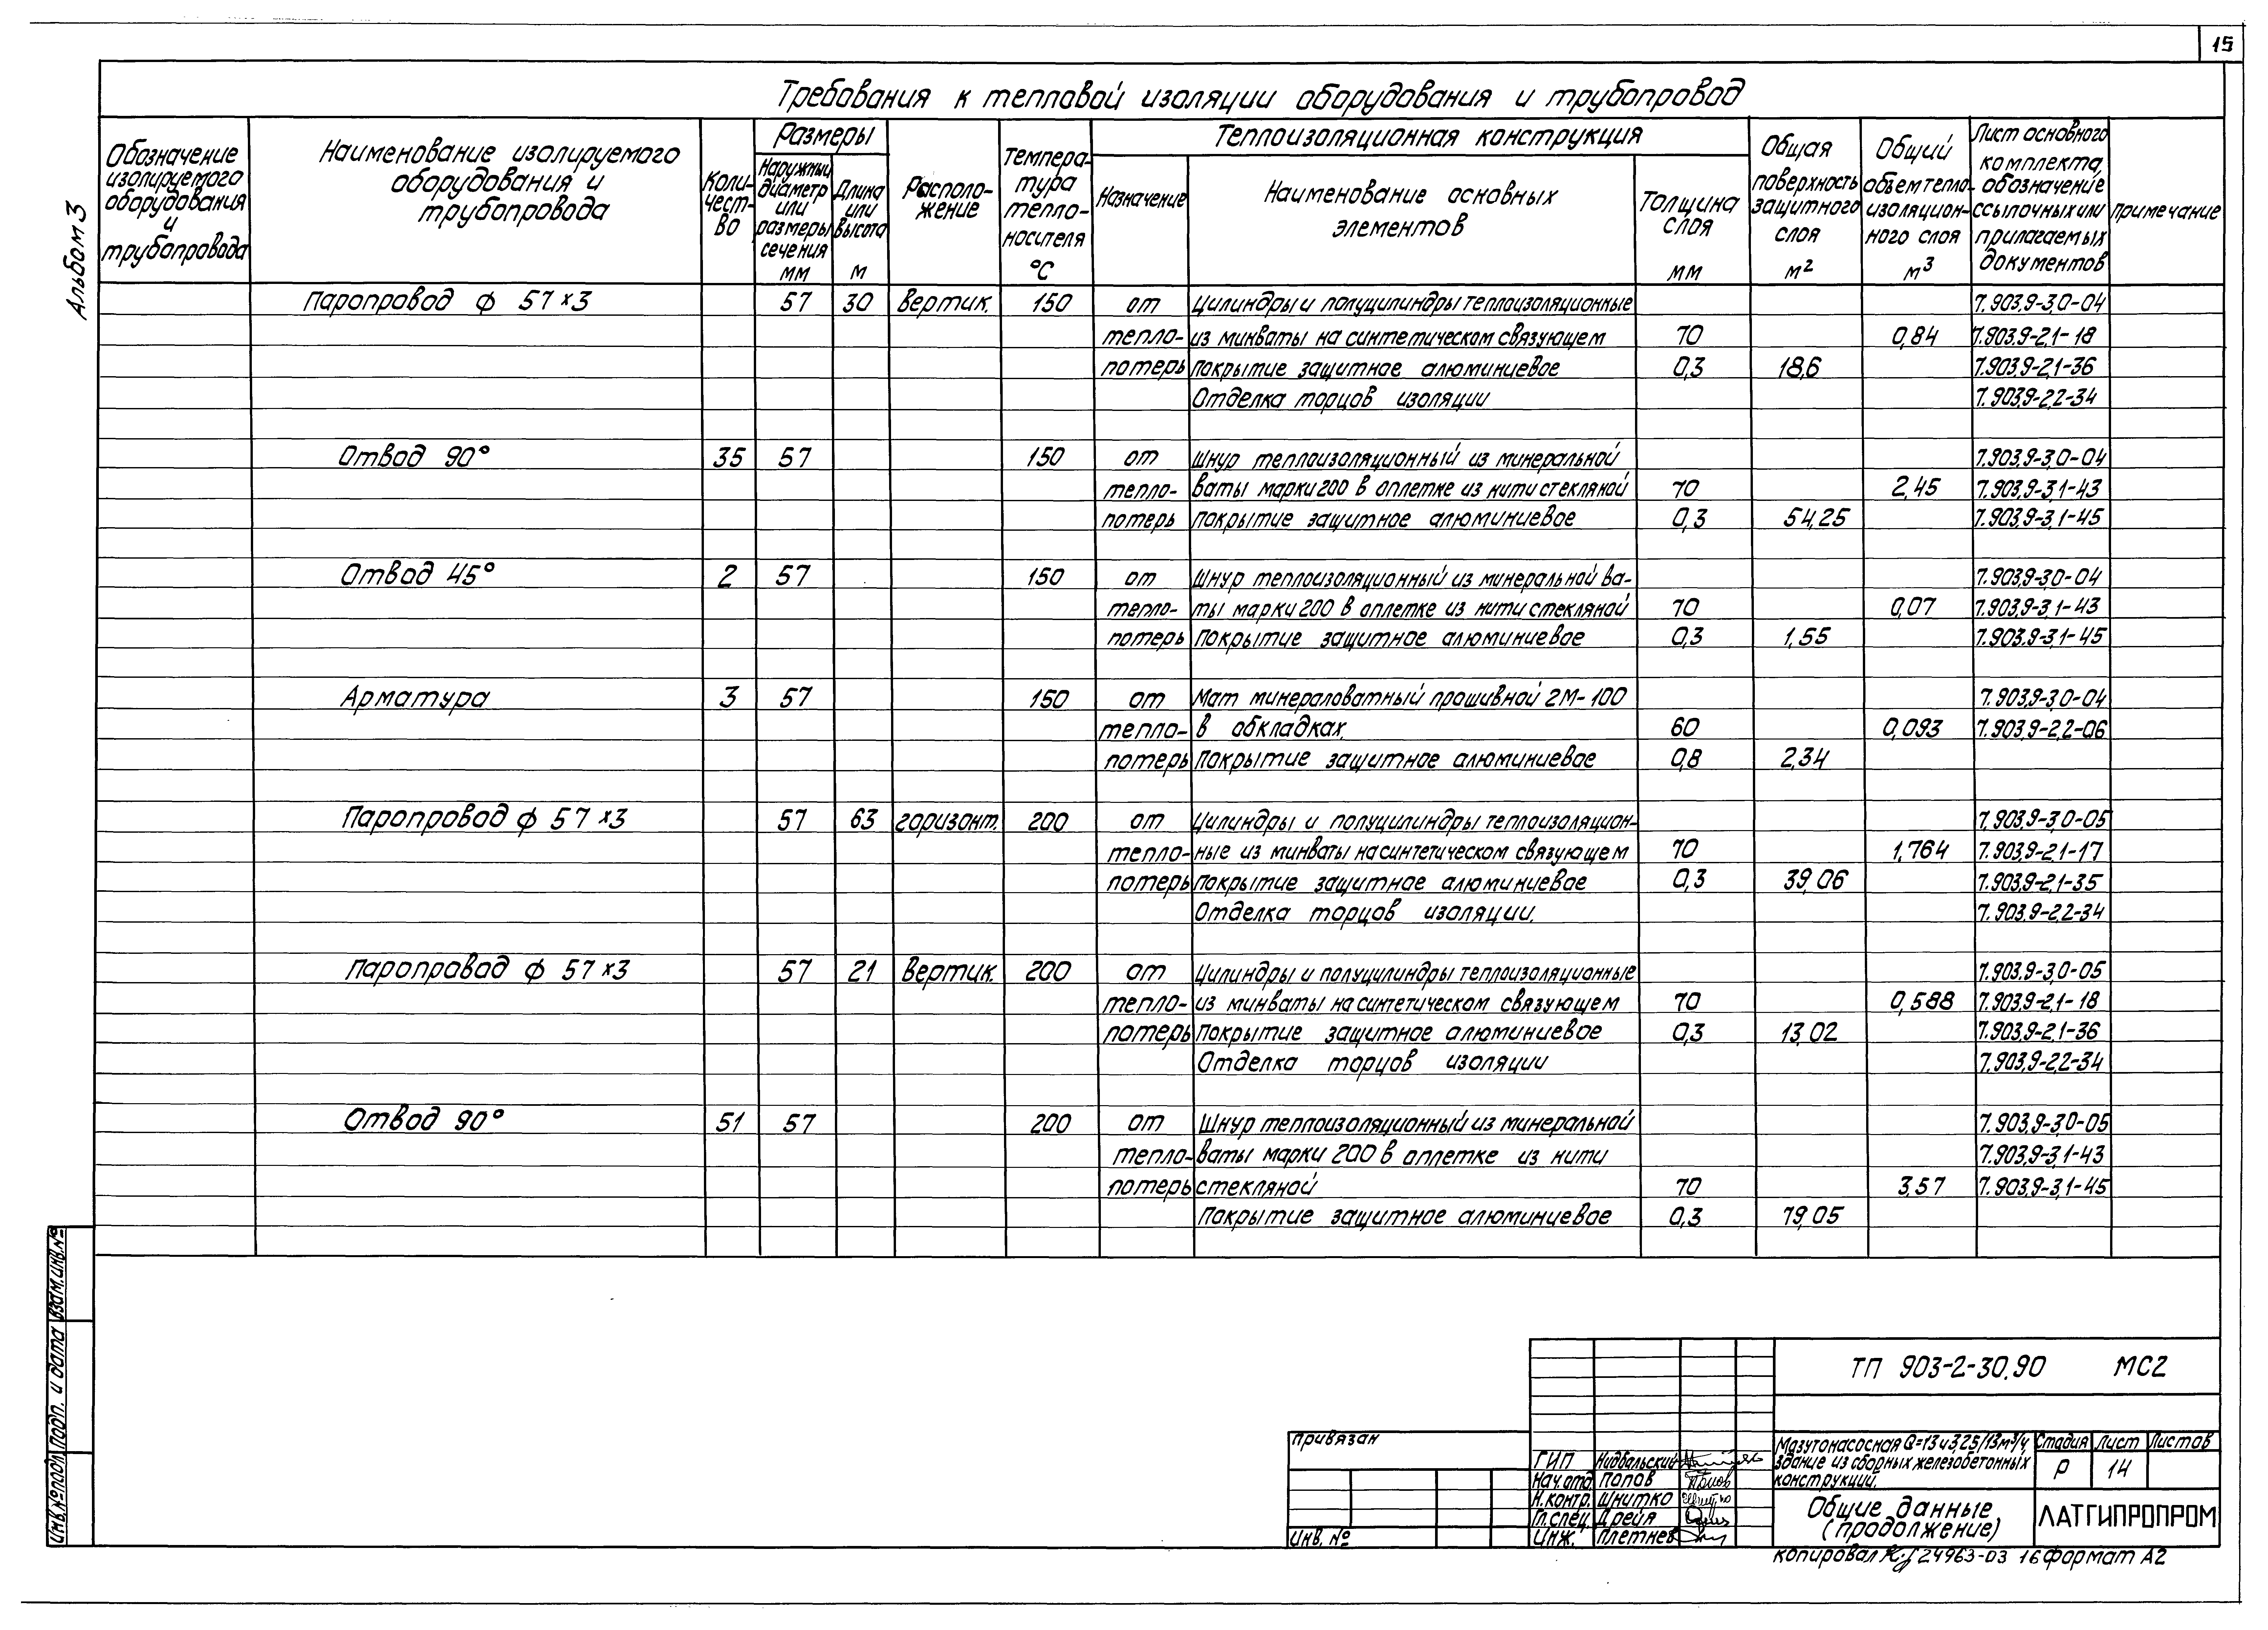 15
Альбом 3
Требования к тепловой изоляции оборудования и трубопровод
Обозначение изолируемого оборудования и трубопровода
Наименование изолируемого оборудования и трубопровода
Коли-чест-во
Размеры
Наружный диаметр или размеры сечения мм
Длина или высота м
Располо-жение
Темпера-тура тепло-носителя °С
Теплоизоляционная конструкция
Назначение
Наименование основных элементов
Толщина слоя мм
Общая поверхность защитного слоя м²
Общий объем тепло-изоляцион-ного слоя м³
Лист основного комплекта, обозначение ссылочных или прилагаемых документов
Примечание
Паропровод ф 57×3 57 30 Вертик. 150 от Цилиндры и полуцилиндры теплоизоляционные 7.903,9-3,0-04
тепло- из минваты на синтетическом связующем 70 0,84 7.903,9-2,1-18
потерь Покрытие защитное алюминиевое 0,3 18,6 7.903,9-2,1-36
Отделка торцов изоляции 7.903,9-2,2-34
Отвод 90° 35 57 150 от Шнур теплоизоляционный из минеральной 7.903,9-3,0-04
тепло- ваты марки 200 в оплетке из нити стекляной 70 2,45 7.903,9-3,1-43
потерь Покрытие защитное алюминиевое 0,3 54,25 7.903,9-3,1-45
Отвод 45° 2 57 150 от Шнур теплоизоляционный из минеральной ва- 7.903,9-3,0-04
тепло- ты марки 200 в оплетке из нити стекляной 70 0,07 7.903,9-3,1-43
потерь Покрытие защитное алюминиевое 0,3 1,55 7.903.9-3,1-45
Арматура 3 57 150 от Мат минераловатный прошивной 2М-100 7.903,9-3,0-04
тепло- в обкладках. 60 0,093 7.903,9-2,2-06
потерь Покрытие защитное алюминиевое 0,8 2,34
Паропровод ф 57×3 57 63 горизонт. 200 от Цилиндры и полуцилиндры теплоизоляцион- 7.903,9-3,0-05
тепло- ные из минваты на синтетическом связующем 70 1,764 7.903,9-2,1-17
потерь Покрытие защитное алюминиевое 0,3 39,06 7.903,9-2,1-35
Отделка торцов изоляции. 7.903,9-2,2-34
Паропровод ф 57×3 57 21 Вертик. 200 от Цилиндры и полуцилиндры теплоизоляционные 7.903,9-3,0-05
тепло- из минваты на синтетическом связующем 70 0,588 7.903,9-2,1-18
потерь Покрытие защитное алюминиевое 0,3 13,02 7.903,9-2,1-36
Отделка торцов изоляции 7.903,9-2,2-34
Отвод 90° 51 57 200 от Шнур теплоизоляционный из минеральной 7.903,9-3,0-05
тепло- ваты марки 200 в оплетке из нити 7.903,9-3,1-43
потерь стекляной 70 3,57 7.903,9-3,1-45
Покрытие защитное алюминиевое 0,3 79,05
Взам.инв.№
Подп. и дата
Инв.№ подл
Привязан
Инв. №
ТП 903-2-30.90 МС2
ГИП Нидбальский
Нач.отд. Попов
Н.контр. Шнитко
Гл.спец. Дрейя
Инж. Плетнев
Мазутонасосная Q=13 и 3,25/13 м³/ч,
здание из сборных железобетонных
конструкций.
Стадия Лист Листов
Р 14
Общие данные
(продолжение)
ЛАТГИПРОПРОМ
Копировал 24963-03 16 Формат А2